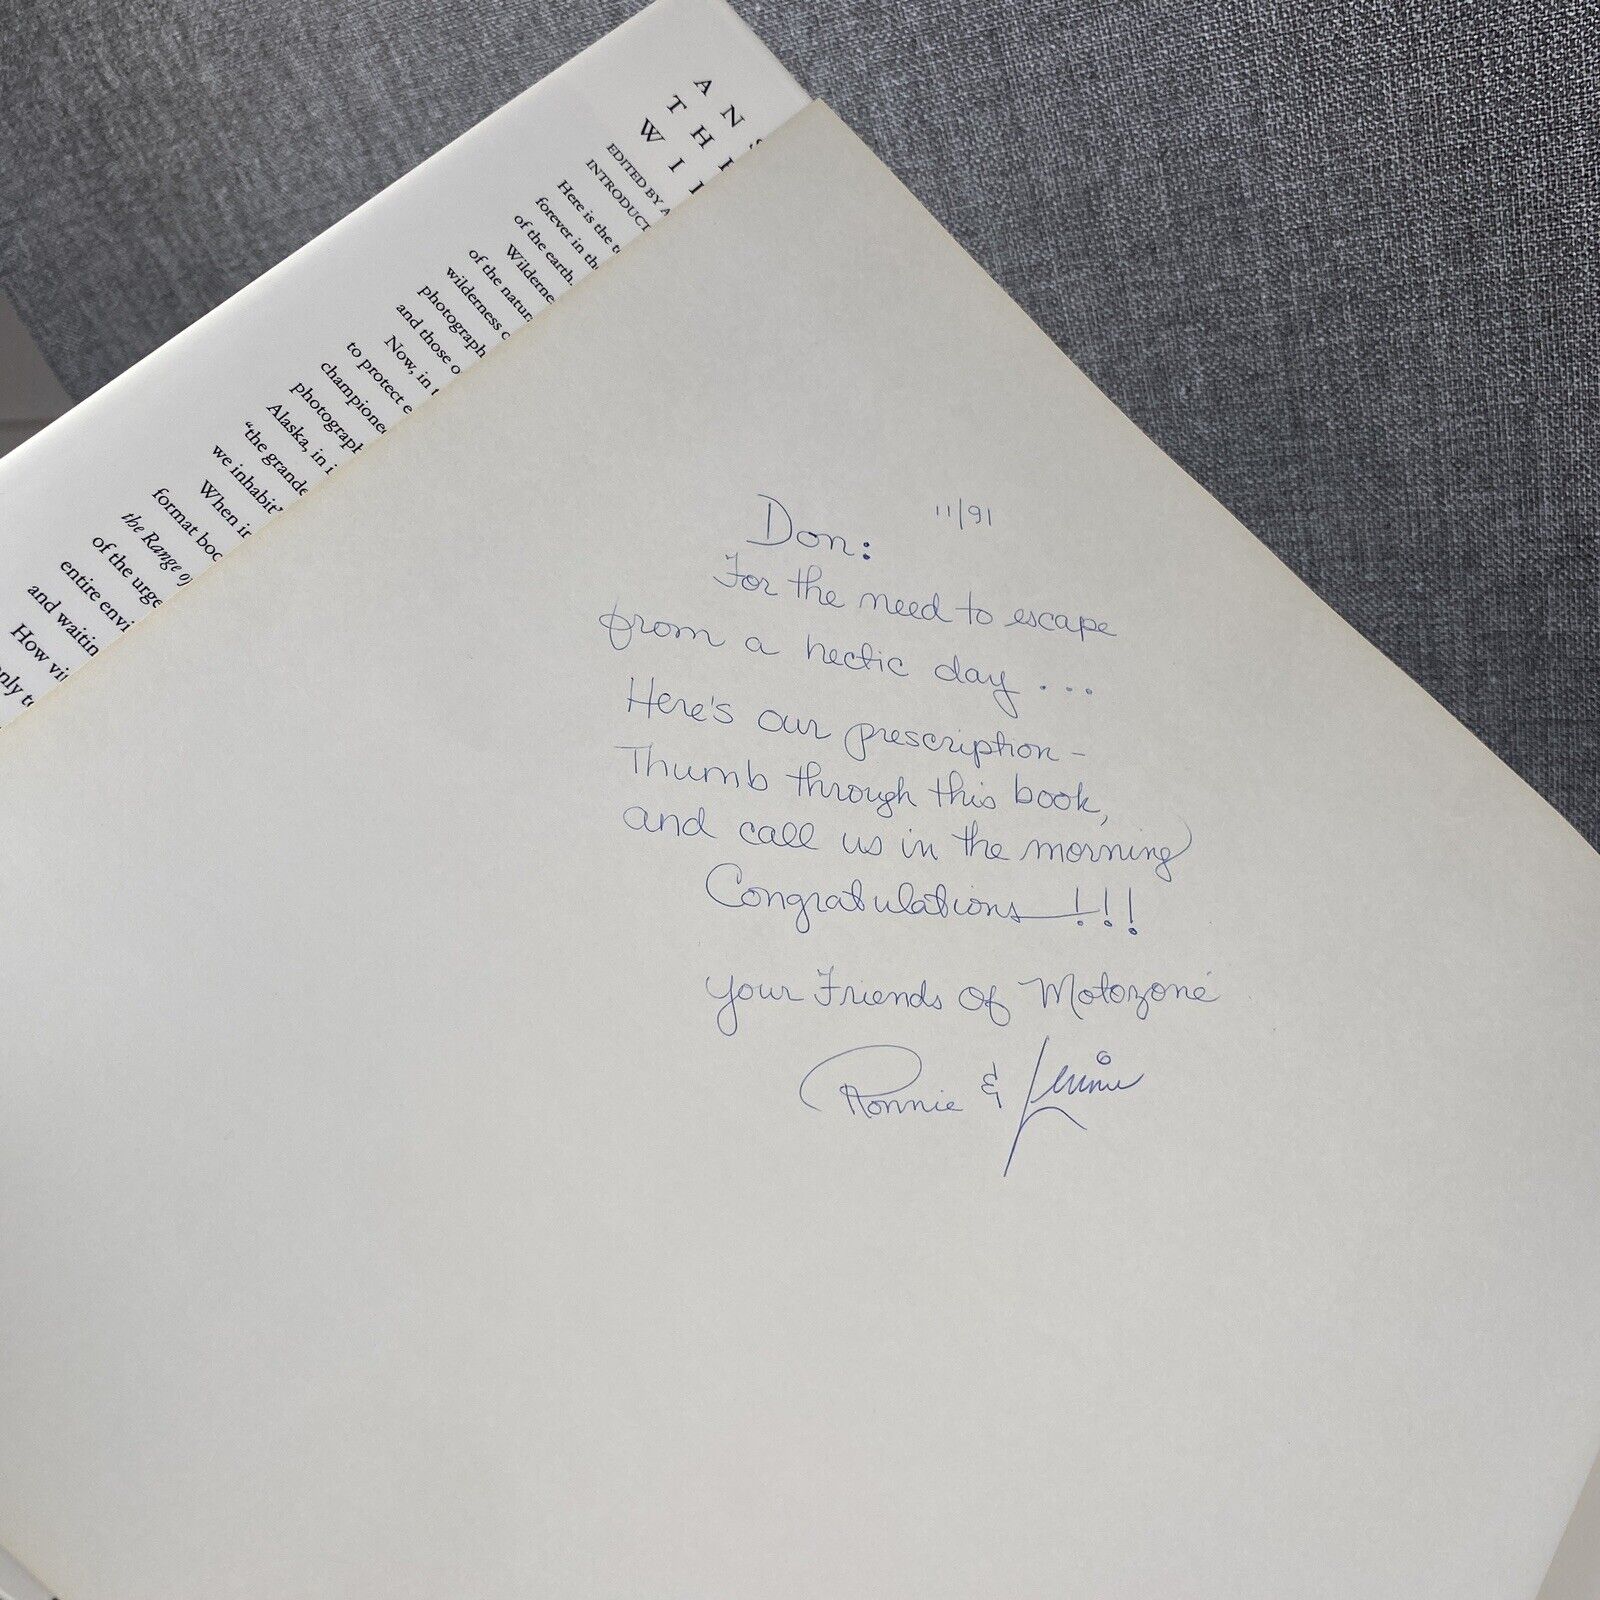 A N S
T H E
W I
EDITED BY A
INTRODUCT
Here is the
forever in the
of the earth.
Wilderne
of the natur
wilderness
photograph
and those o
Now, in
to protect e
champione
photograph
Alaska, in i
"the grande
we inhabit"
When in
format boo
the Range of
of the urge
entire envi
and waitin
How vi
only t
11/91
Don:
For the need to escape
from a hectic day ...
Here's our prescription -
Thumb through this book,
and call us in the morning
Congratulations !!!
Your Friends of Motozoné
Ronnie & Lennie